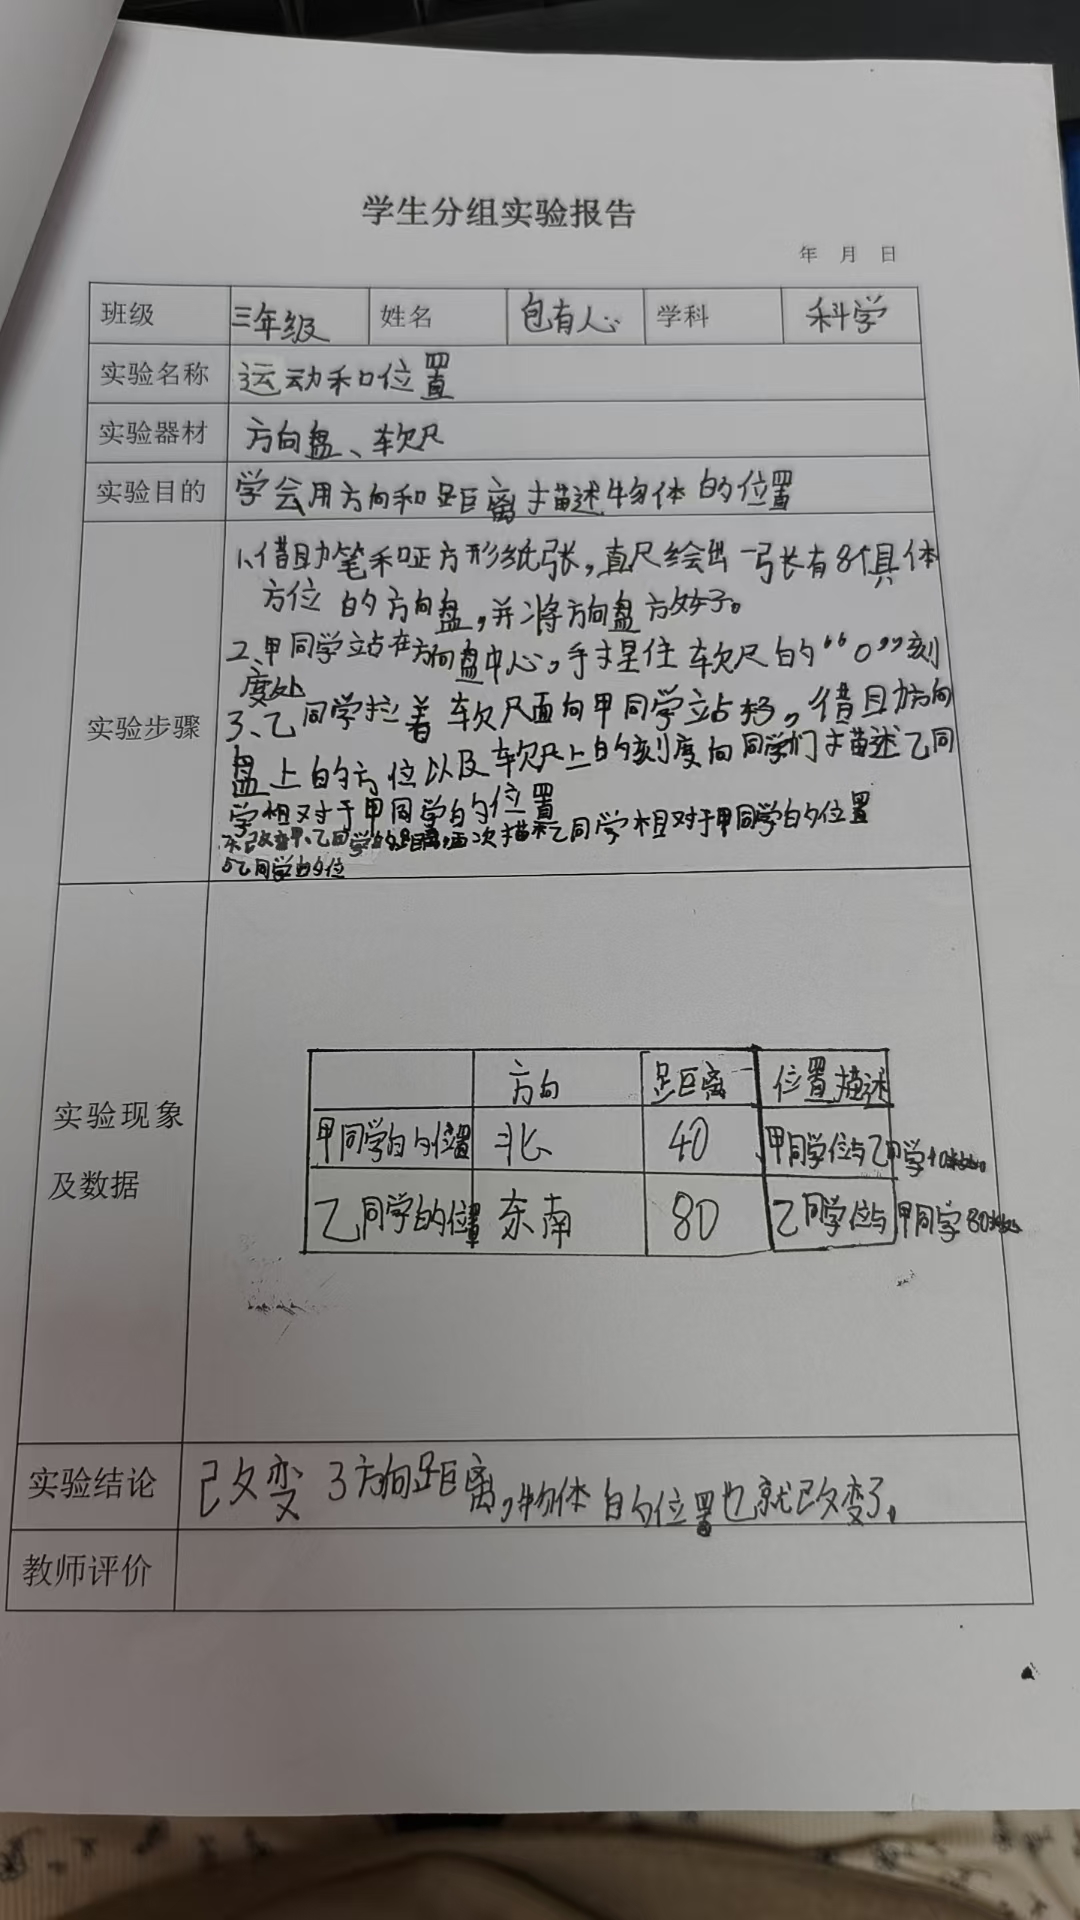 学生分组实验报告
年 月 日
班级 三年级 姓名 包有人 学科 科学
实验名称 运动和位置
实验器材 方向盘、软尺
实验目的 学会用方向和距离描述物体的位置
实验步骤
1、借助笔和正方形纸张,直尺绘出一张有8个具体
方位的方向盘,并将方向盘方好。
2、甲同学站在方向盘中心,手捏住软尺的“0”刻
度处
3、乙同学拉着软尺面向甲同学站好,借助方向
盘上的方位以及软尺上的刻度向同学们描述乙同
学相对于甲同学的位置
改变甲、乙同学的距离,再次描述乙同学相对于甲同学的位置
乙同学的位
实验现象
及数据
方向 距离 位置描述
甲同学的位置 北 40 甲同学位与乙甲学40米处
乙同学的位置 东南 80 乙同学位与甲同学80米处
实验结论 改变了方向距离,物体的位置也就改变了。
教师评价